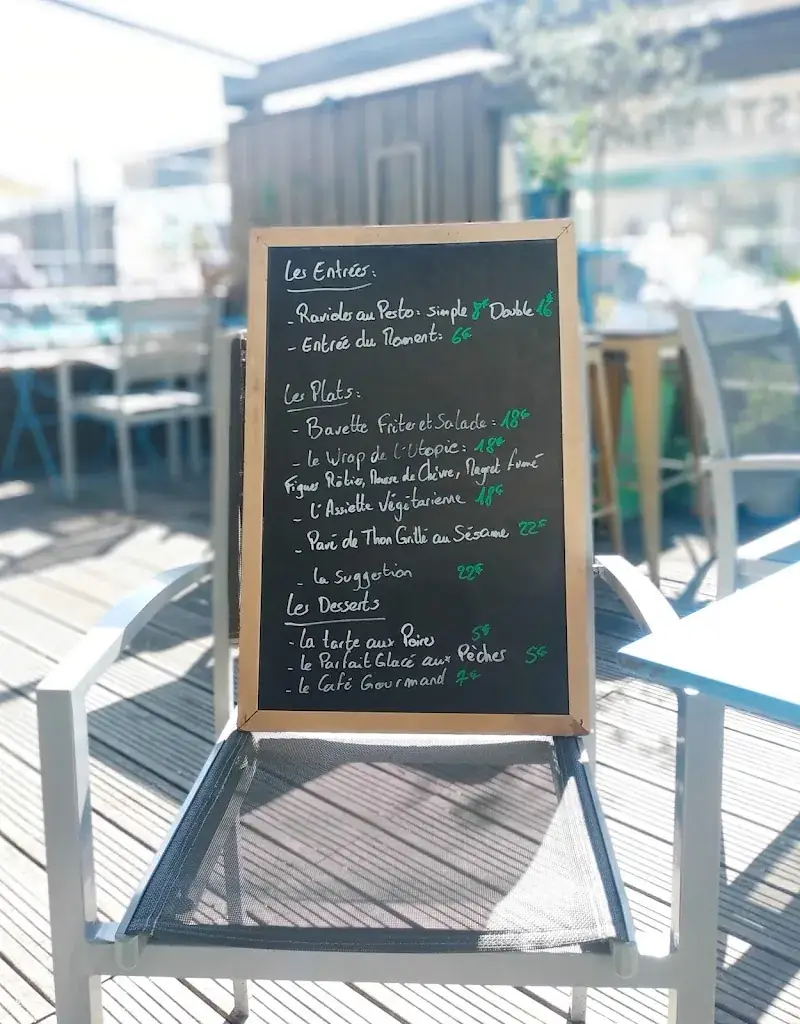 Les Entrées:
- Ravioles au Pesto: simple 8€ Double 16€
- Entrée du Moment: 6€
Les Plats:
- Bavette Frites et Salade: 18€
- Le Wrap de L'Utopie: 18€
Figues Rôties, Mousse de Chèvre, Magret fumé
- L'Assiette Végétarienne 18€
- Pavé de Thon Grillé au Sésame 22€
- La Suggestion 22€
Les Desserts
- La tarte aux Poires 5€
- Le Parfait Glacé aux Pèches 5€
- Le Café Gourmand 7€